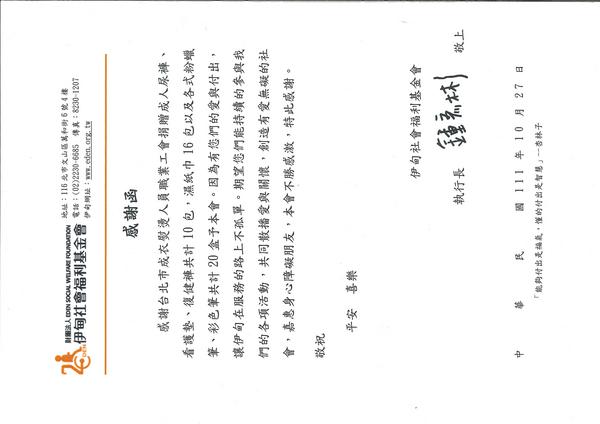 財團法人 EDEN SOCIAL WELFARE FOUNDATION
伊甸社會福利基金會
EDEN
地址：116 北市文山區萬和街6號4樓
電話：(02)2230-6685 傳真：8230-1207
伊甸網址：www.eden.org.tw
感謝函
感謝台北市成衣熨燙人員職業工會捐贈成人尿褲、
看護墊、復健褲共計 10 包，濕紙巾 16 包以及各式粉蠟
筆、彩色筆共計 20 盒予本會。因為有您們的愛與付出，
讓伊甸在服務的路上不孤單。期望您們能持續的參與我
們的各項活動，共同散播愛與關懷，創造有愛無礙的社
會，嘉惠身心障礙朋友，本會不勝感激，特此感謝。
敬祝
平安 喜樂
伊甸社會福利基金會
執行長 敬上
中 華 民 國 111 年 10 月 27 日
「能夠付出是福氣，懂的付出是智慧」—杏林子